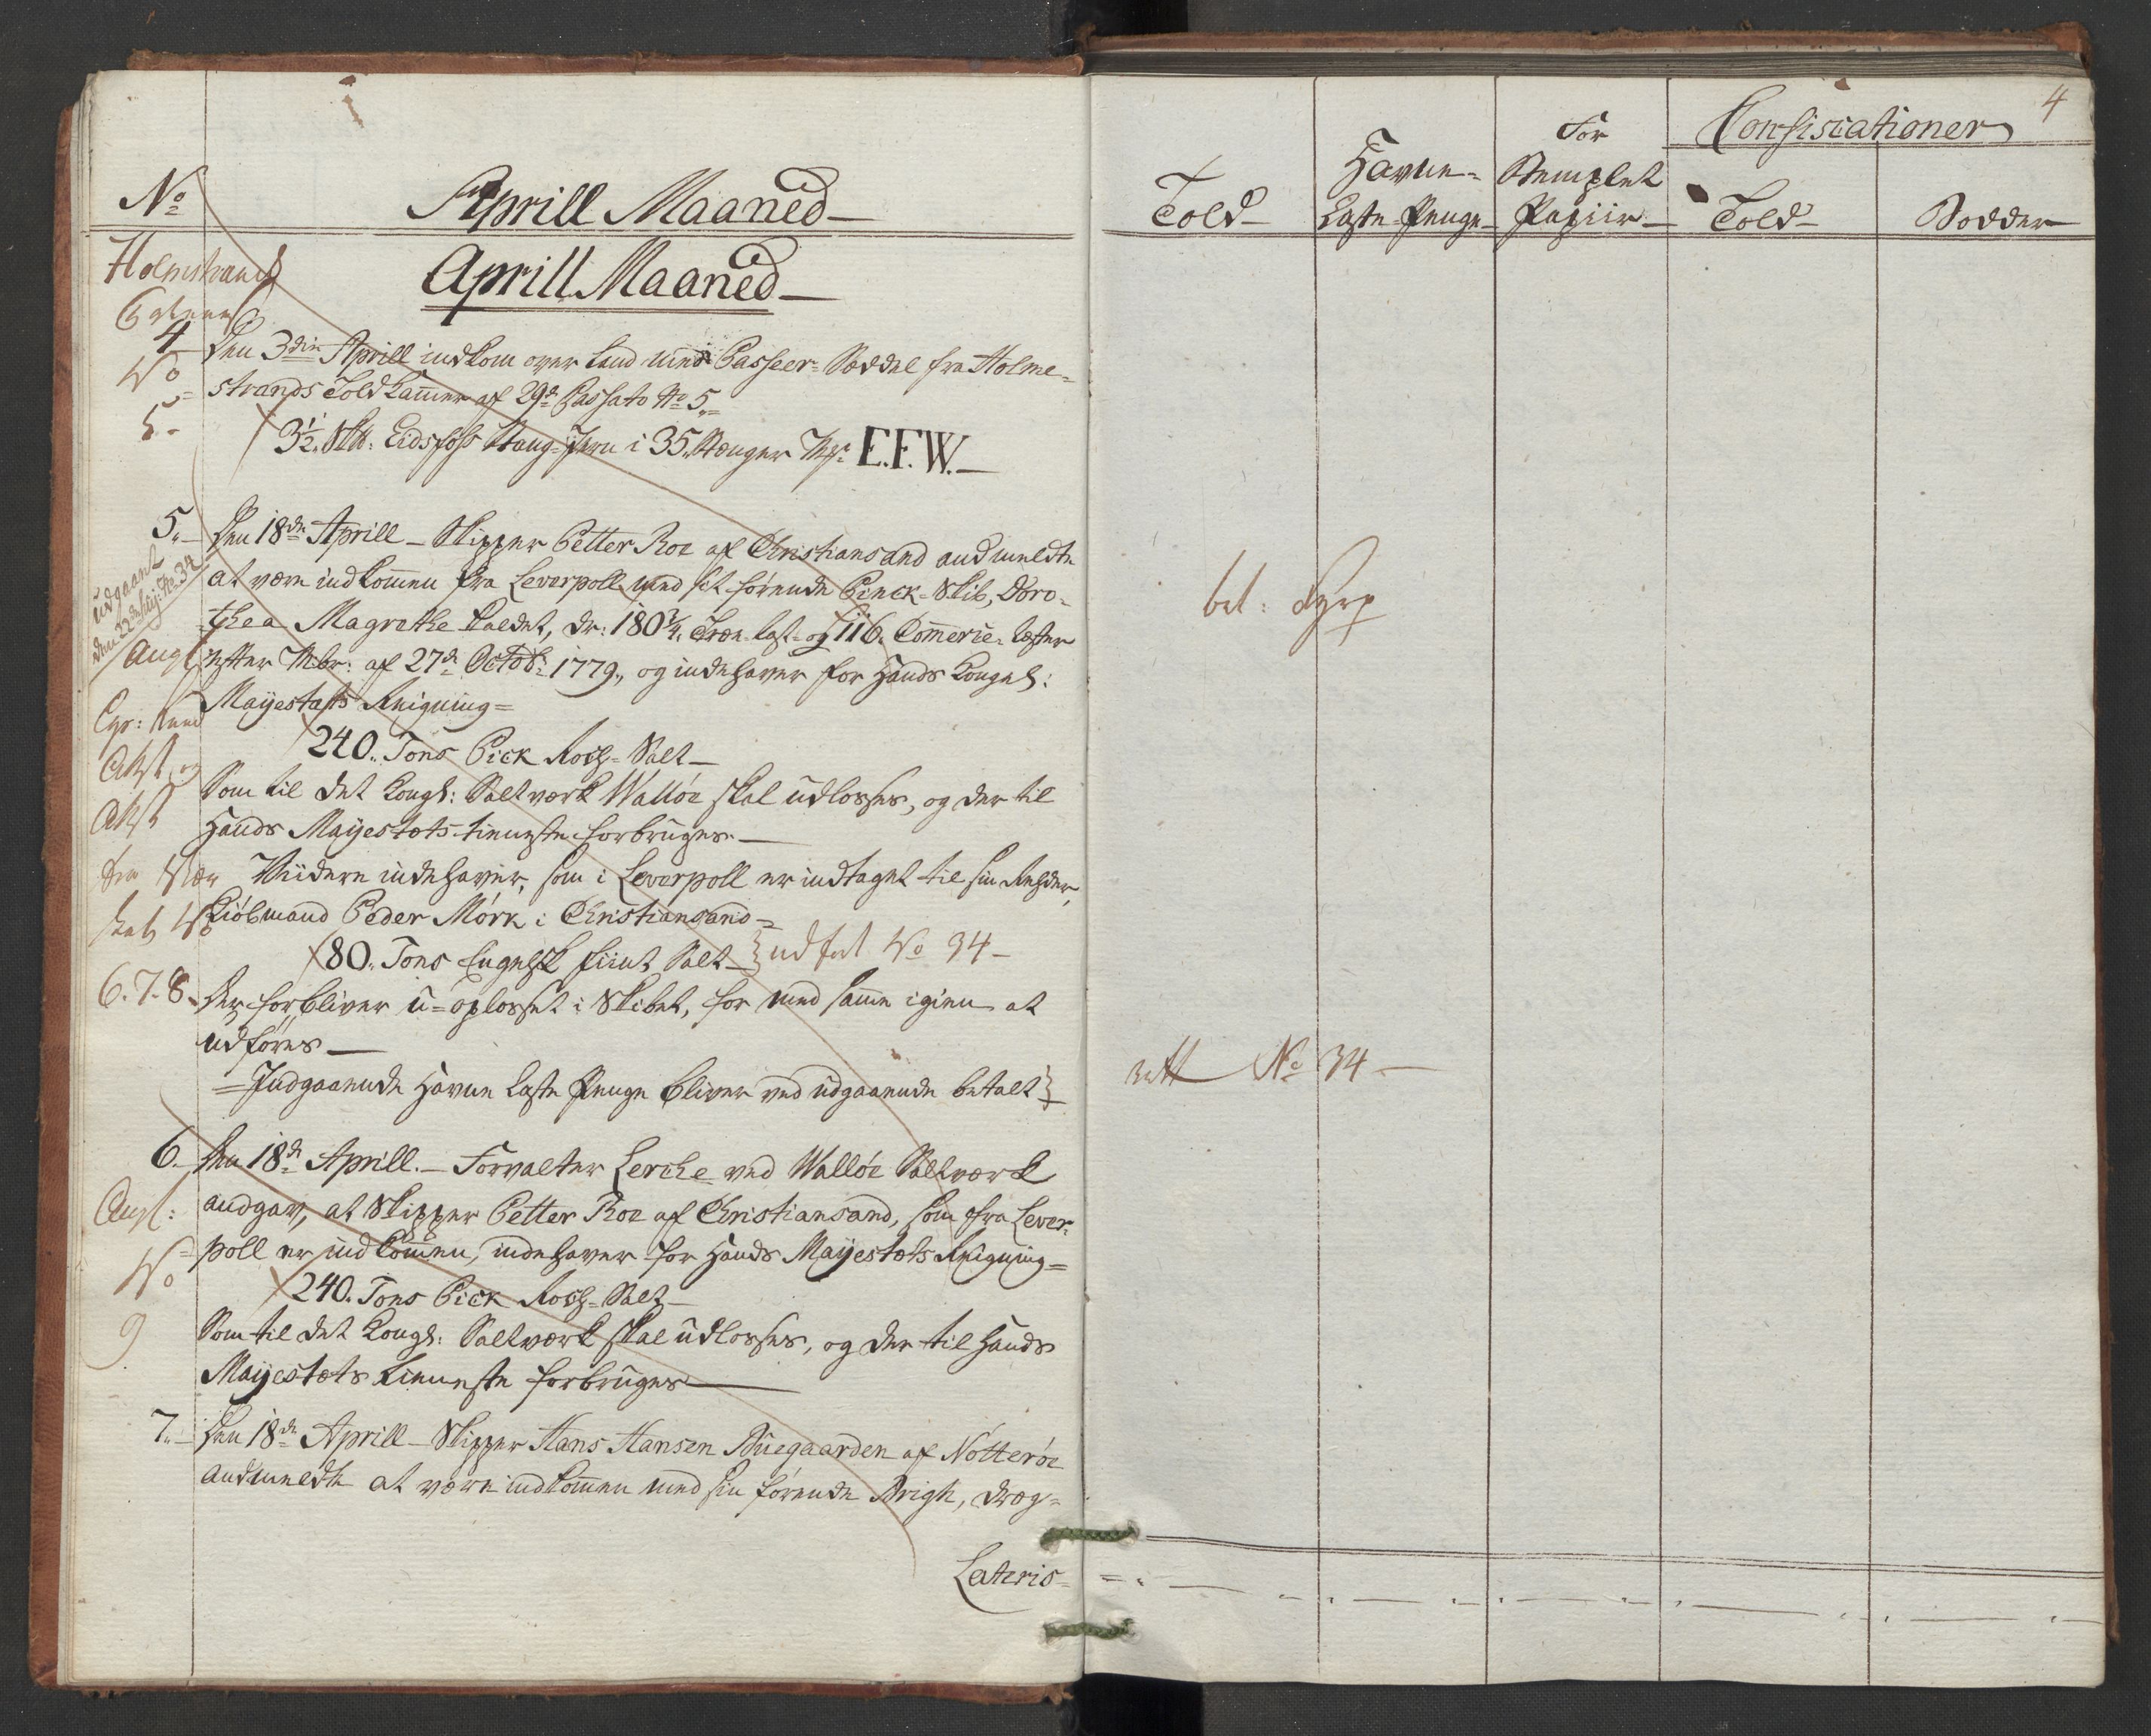 No
Aprill Maaned
Aprill Maaned
Holmstrand
4 Den 3die Aprill indkom over Land med Passeer-Sæddel fra Holme-
No strands Toldkammer af 29de Passato No 5.
5 3 1/2 Sk℔: Eidsfoss Stang-Jern i 35 Stænger Mrk: E.F.W.
5. Den 18de Aprill Skipper Petter Roe af Christiansand andmeldte
udgaaet
den 22de No 34
at være indkommen fra Leverpoll med sit førende Pinck-Skib, Doro-
thea Magrethe kaldet, dr: 180 3/4 Træ-Last og 116 Commerce-Læster
Ang efter Mbr: af 27de Octobr 1779, og indehaver for Hands Kongel:
Mayestæts Reigning
240. Tons Pick Roch-Salt
Attst og
Som til det Kongl: Saltværk Walløe skal udlosses, og der til
Attst
Hands Mayestæts tieneste forbruges.
Viidere indehaver, som i Leverpoll er indtaget til sin Rehder,
Kiøbmand Peder Mørk i Christiansand
80. Tons Engelsk fiint Salt } udført No 34
6. 7. 8. Der forbliver u-oplosset i Skibet, for med samme igien at
udføres
Indgaaende Havne Laste Penge bliver ved udgaaende betalt
6. Den 18de Aprill. Forvalter Lerche ved Walløe Saltværk
Angl: andgav, at Skipper Petter Roe af Christiansand, som fra Lever-
poll er indkommen, indehaver for Hands Mayestæts Reigning
No 240. Tons Pick Roch-Salt
9 Som til det Kongl: Saltværk skal udlosses, og der til Hands
Mayestæts tieneste forbruges
7. Den 18de Aprill Skipper Hans Hansen Buegaarden af Nøtterøe
andmeldte at være indkommen med sin førende Brigh, dræg-
Lateris
4
Told
Havne-
Laste-Penge
For
Stemplet
Papiir
Confiscationer
Told
Bødder
No 34